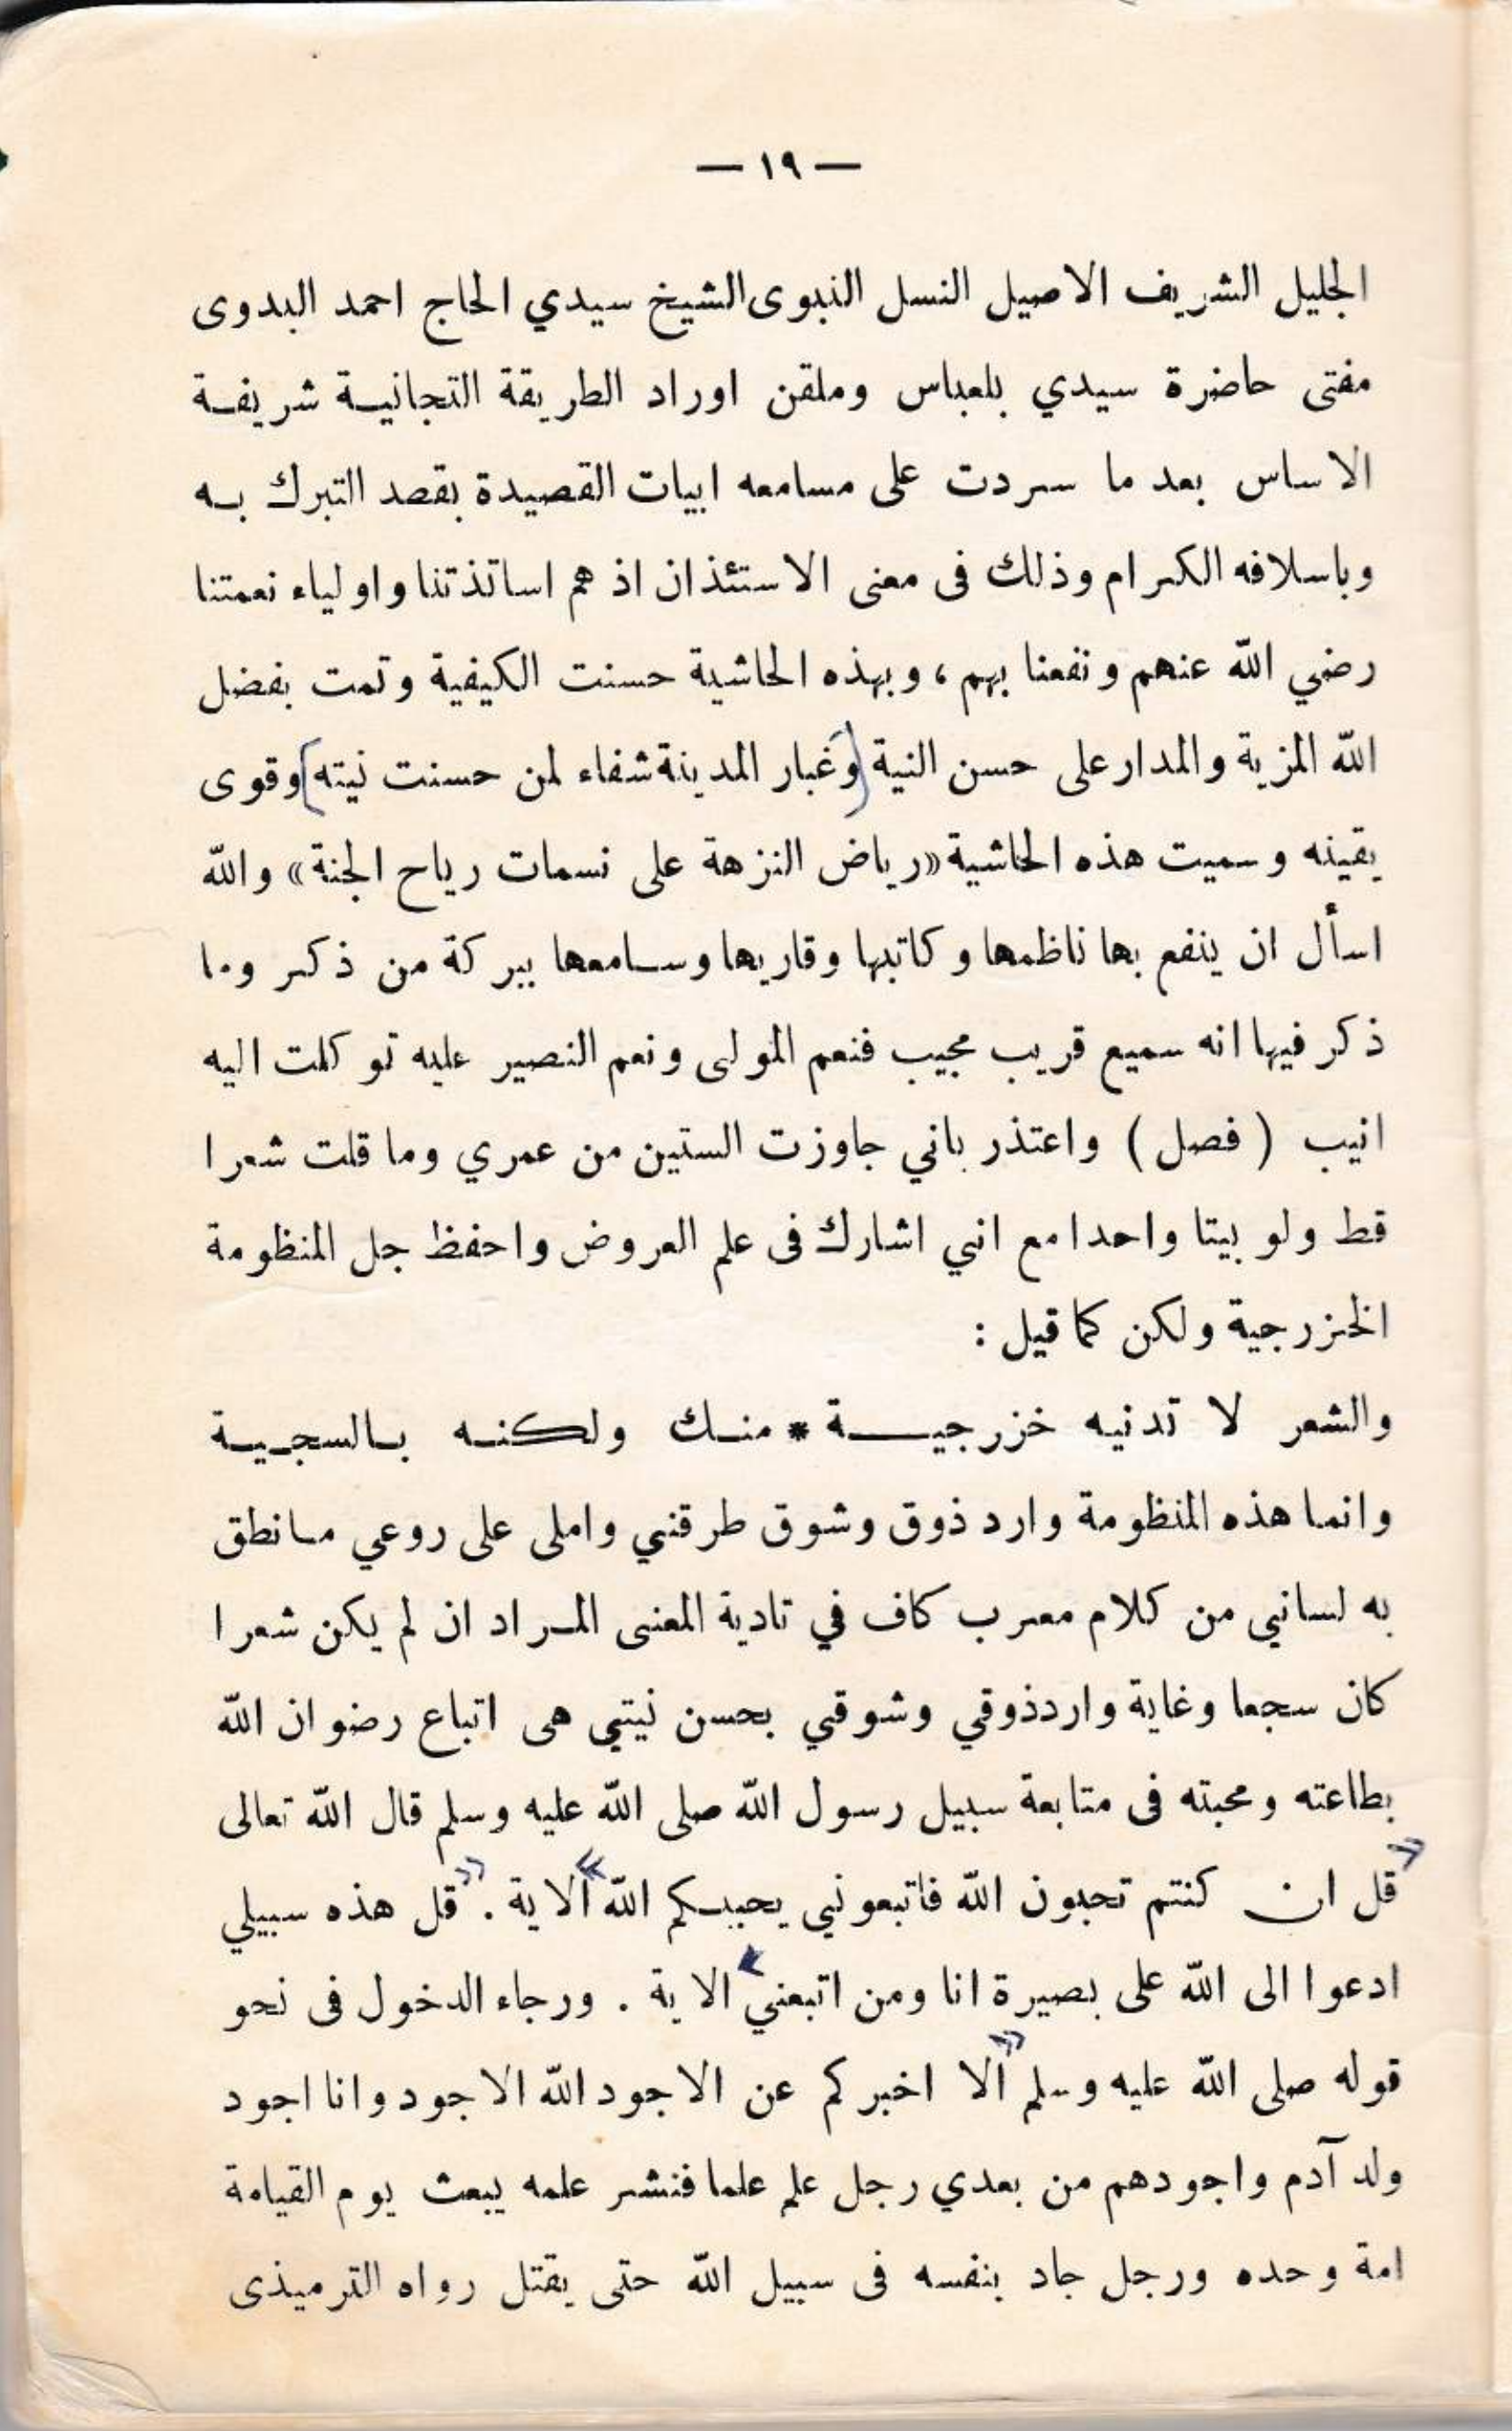 — ١٩ —
الجليل الشريف الاصيل النسل النبوى الشيخ سيدي الحاج احمد البدوى
مفتى حاضرة سيدي بلعباس وملقن اوراد الطريقة التجانية شريفة
الاساس بعد ما سردت على مسامعه ابيات القصيدة بقصد التبرك به
وباسلافه الكرام وذلك فى معنى الاستئذان اذ هم اساتذتنا واولياء نعمتنا
رضي الله عنهم ونفعنا بهم ، وبهذه الحاشية حسنت الكيفية وتمت بفضل
الله المزية والمدار على حسن النية (وَغبار المدينة شفاء لمن حسنت نيته) وقوى
يقينه وسميت هذه الحاشية «رياض النزهة على نسمات رياح الجنة» والله
اسأل ان ينفع بها ناظمها وكاتبها وقاريها وسامعها ببركة من ذكر وما
ذكر فيها انه سميع قريب مجيب فنعم المولى ونعم النصير عليه توكلت اليه
انيب ( فصل ) واعتذر باني جاوزت الستين من عمري وما قلت شعرا
قط ولو بيتا واحدا مع اني اشارك فى علم العروض واحفظ جل المنظومة
الخزرجية ولكن كما قيل :
والشعر لا تدنيه خزرجيــة * منك ولكنه بالسجية
وانما هذه المنظومة وارد ذوق وشوق طرقني واملى على روعي ما نطق
به لساني من كلام معرب كاف في تادية المعنى المراد ان لم يكن شعرا
كان سجعا وغاية وارد ذوقي وشوقي بحسن نيتي هى اتباع رضوان الله
بطاعته ومحبته فى متابعة سبيل رسول الله صلى الله عليه وسلم قال الله تعالى
«قل ان كنتم تحبون الله فاتبعوني يحببكم الله» الاية . «قل هذه سبيلي
ادعوا الى الله على بصيرة انا ومن اتبعني» الاية . ورجاء الدخول فى نحو
قوله صلى الله عليه وسلم «الا اخبركم عن الاجود الله الاجود وانا اجود
ولد آدم واجودهم من بعدي رجل علم علما فنشر علمه يبعث يوم القيامة
امة وحده ورجل جاد بنفسه فى سبيل الله حتى يقتل رواه الترميذى